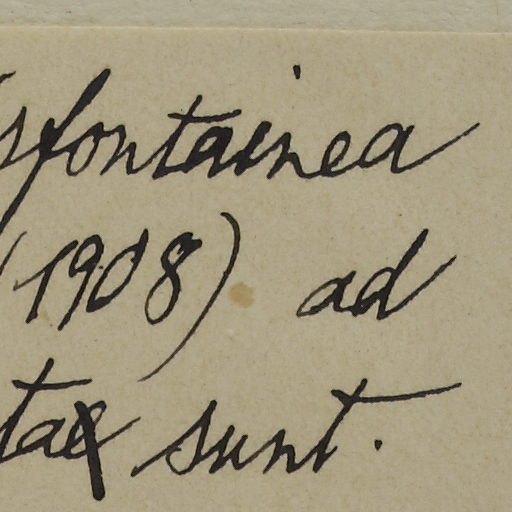 sfontainea
(1908) ad
tae sunt.